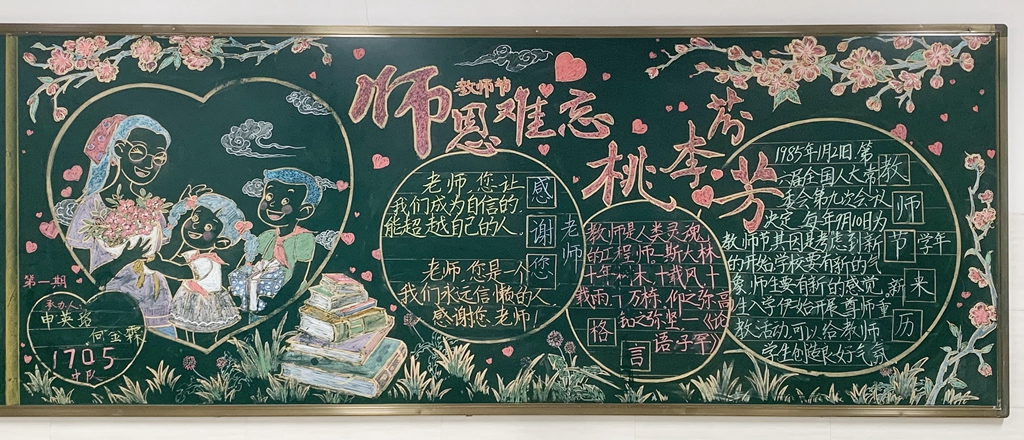 师恩难忘
教师节
桃李芬芳
第一期
承办人:
申英
何金霖
1705
中队
老师,您让
我们成为自信的,
能超越自己的人.
老师,您是一个
我们永远信懒的人
感谢您,老师!
感谢您
老师
教师是人类灵魂
的工程师—斯大林
十年 木 十载风 十
载雨 十万栋.仰之弥高
钻之弥坚—《论
语·子罕
格言
1985年1月21日,第
六届全国人大常
委会第九次会议
决定,每年9月10日为
教师节.其因是考虑到新学年
的开始学校要有新的气
象,师生要有新的感觉.新
生入学伊始开展尊师重
教活动,可以给教师
学生创造良好气氛
教师节来历